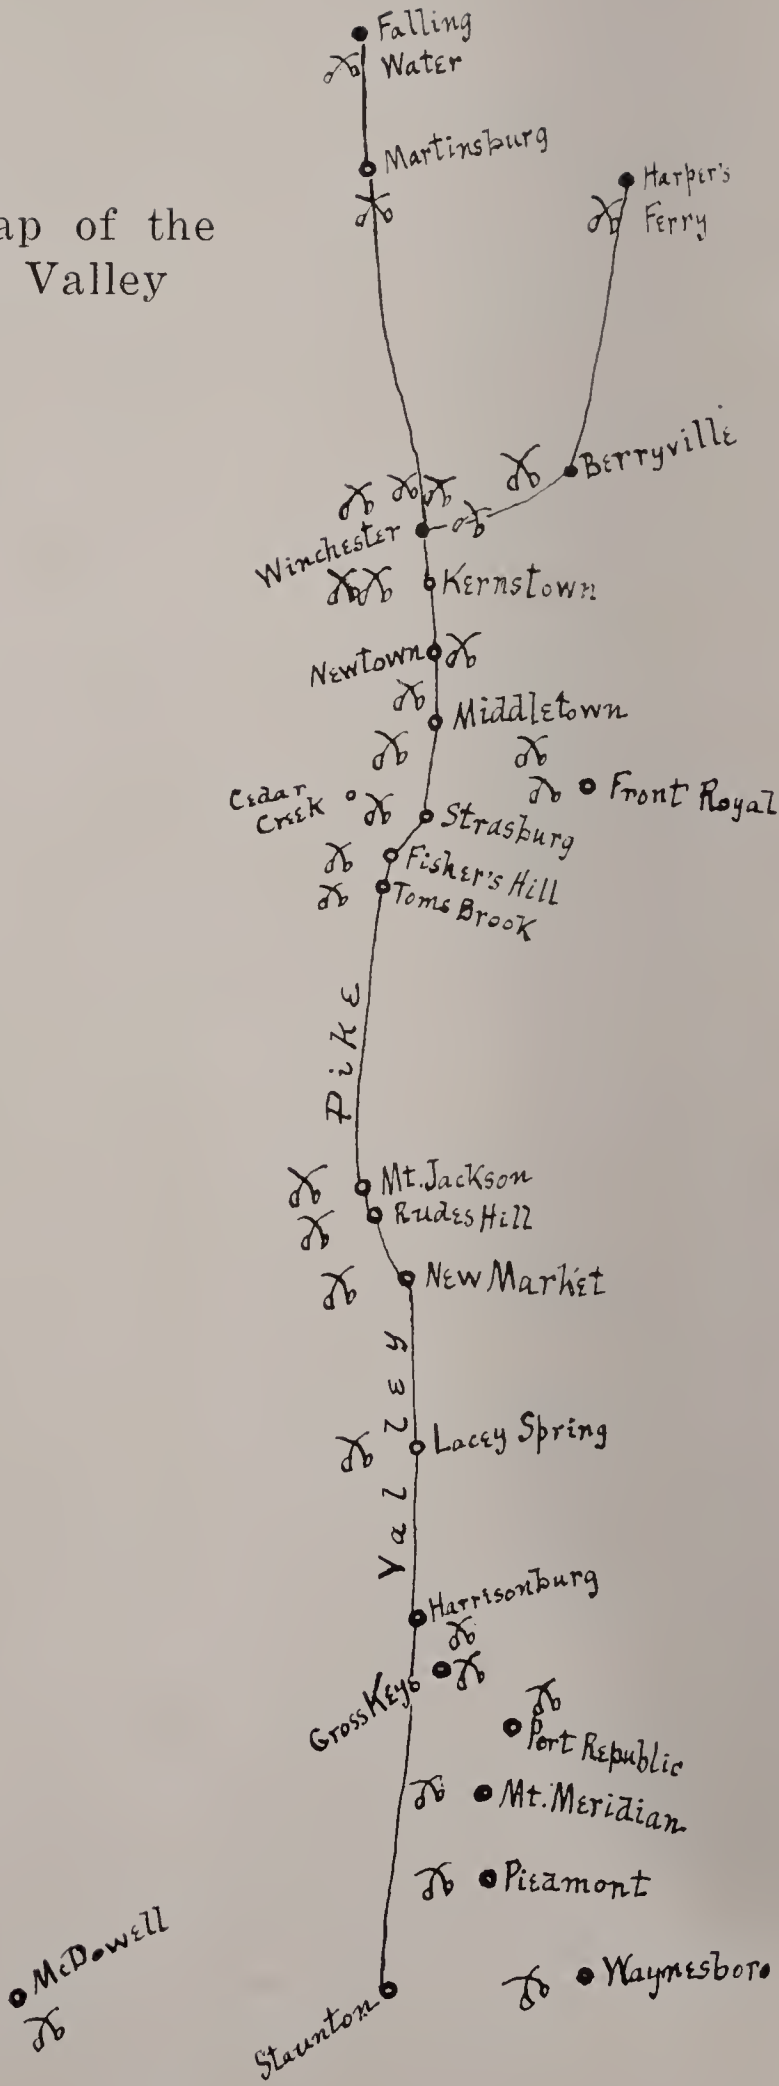 Falling
Water
Martinsburg
Harper's
Ferry
ap of the
Valley
Berryville
Winchester
Kernstown
Newtown
Middletown
Cedar
Creek
Front Royal
Strasburg
Fisher's Hill
Toms Brook
Pike
Mt. Jackson
Rudes Hill
New Market
Valley
Lacey Spring
Harrisonburg
Cross Keys
Port Republic
Mt. Meridian
Piedmont
McDowell
Waynesboro
Staunton